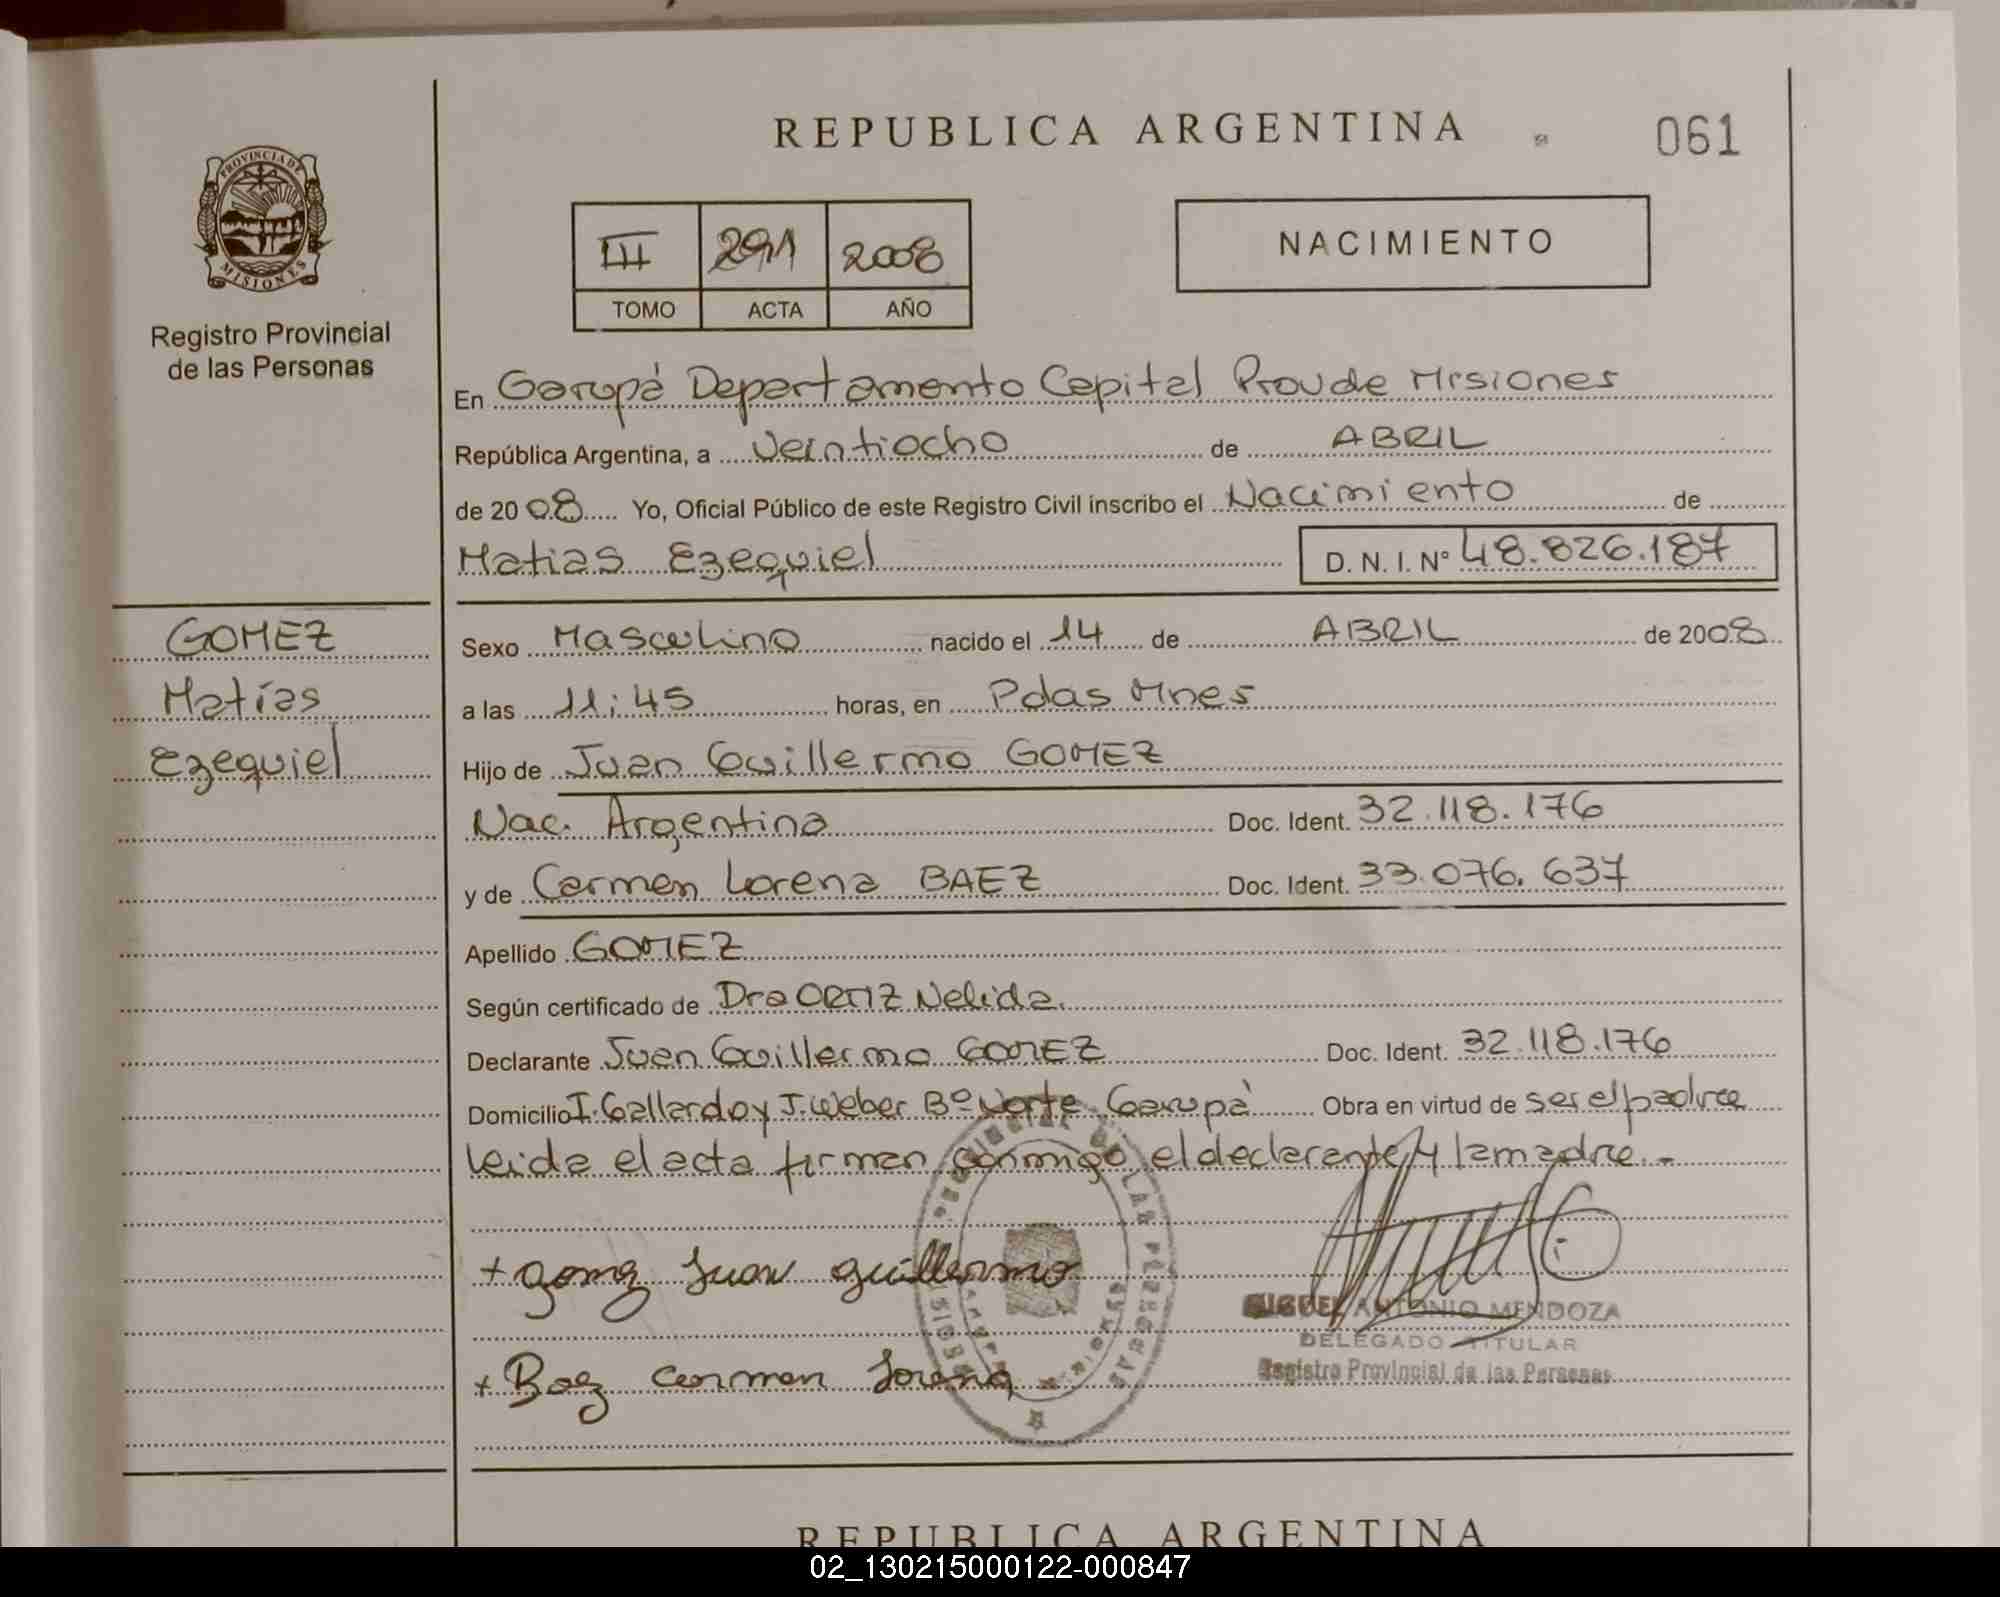 REPUBLICA ARGENTINA
061
PROVINCIA DE MISIONES
Registro Provincial
de las Personas
III 291 2008
TOMO ACTA AÑO
NACIMIENTO
En Garupá Departamento Capital Prov de Misiones
República Argentina, a Veintiocho de ABRIL
de 2008 Yo, Oficial Público de este Registro Civil inscribo el Nacimiento de
Matias Ezequiel D. N. I. Nº 48.826.187
GOMEZ
Matías
Ezequiel
Sexo Masculino nacido el 14 de ABRIL de 2008
a las 11:45 horas, en Pdas Mnes
Hijo de Juan Guillermo GOMEZ
Nac. Argentina Doc. Ident. 32.118.176
y de Carmen Lorena BAEZ Doc. Ident. 33.076.637
Apellido GOMEZ
Según certificado de Dra ORTIZ Nelida.
Declarante Juan Guillermo GOMEZ Doc. Ident. 32.118.176
Domicilio I. Gallardo y J. Weber Bº Norte. Garupá Obra en virtud de ser el padre
leida el acta firman conmigo el declarante y la madre.-
+ Gomez Juan Guillermo
MIGUEL ANTONIO MENDOZA
DELEGADO TITULAR
Registro Provincial de las Personas
+ Baez Carmen Lorena
REPUBLICA ARGENTINA
02_130215000122-000847